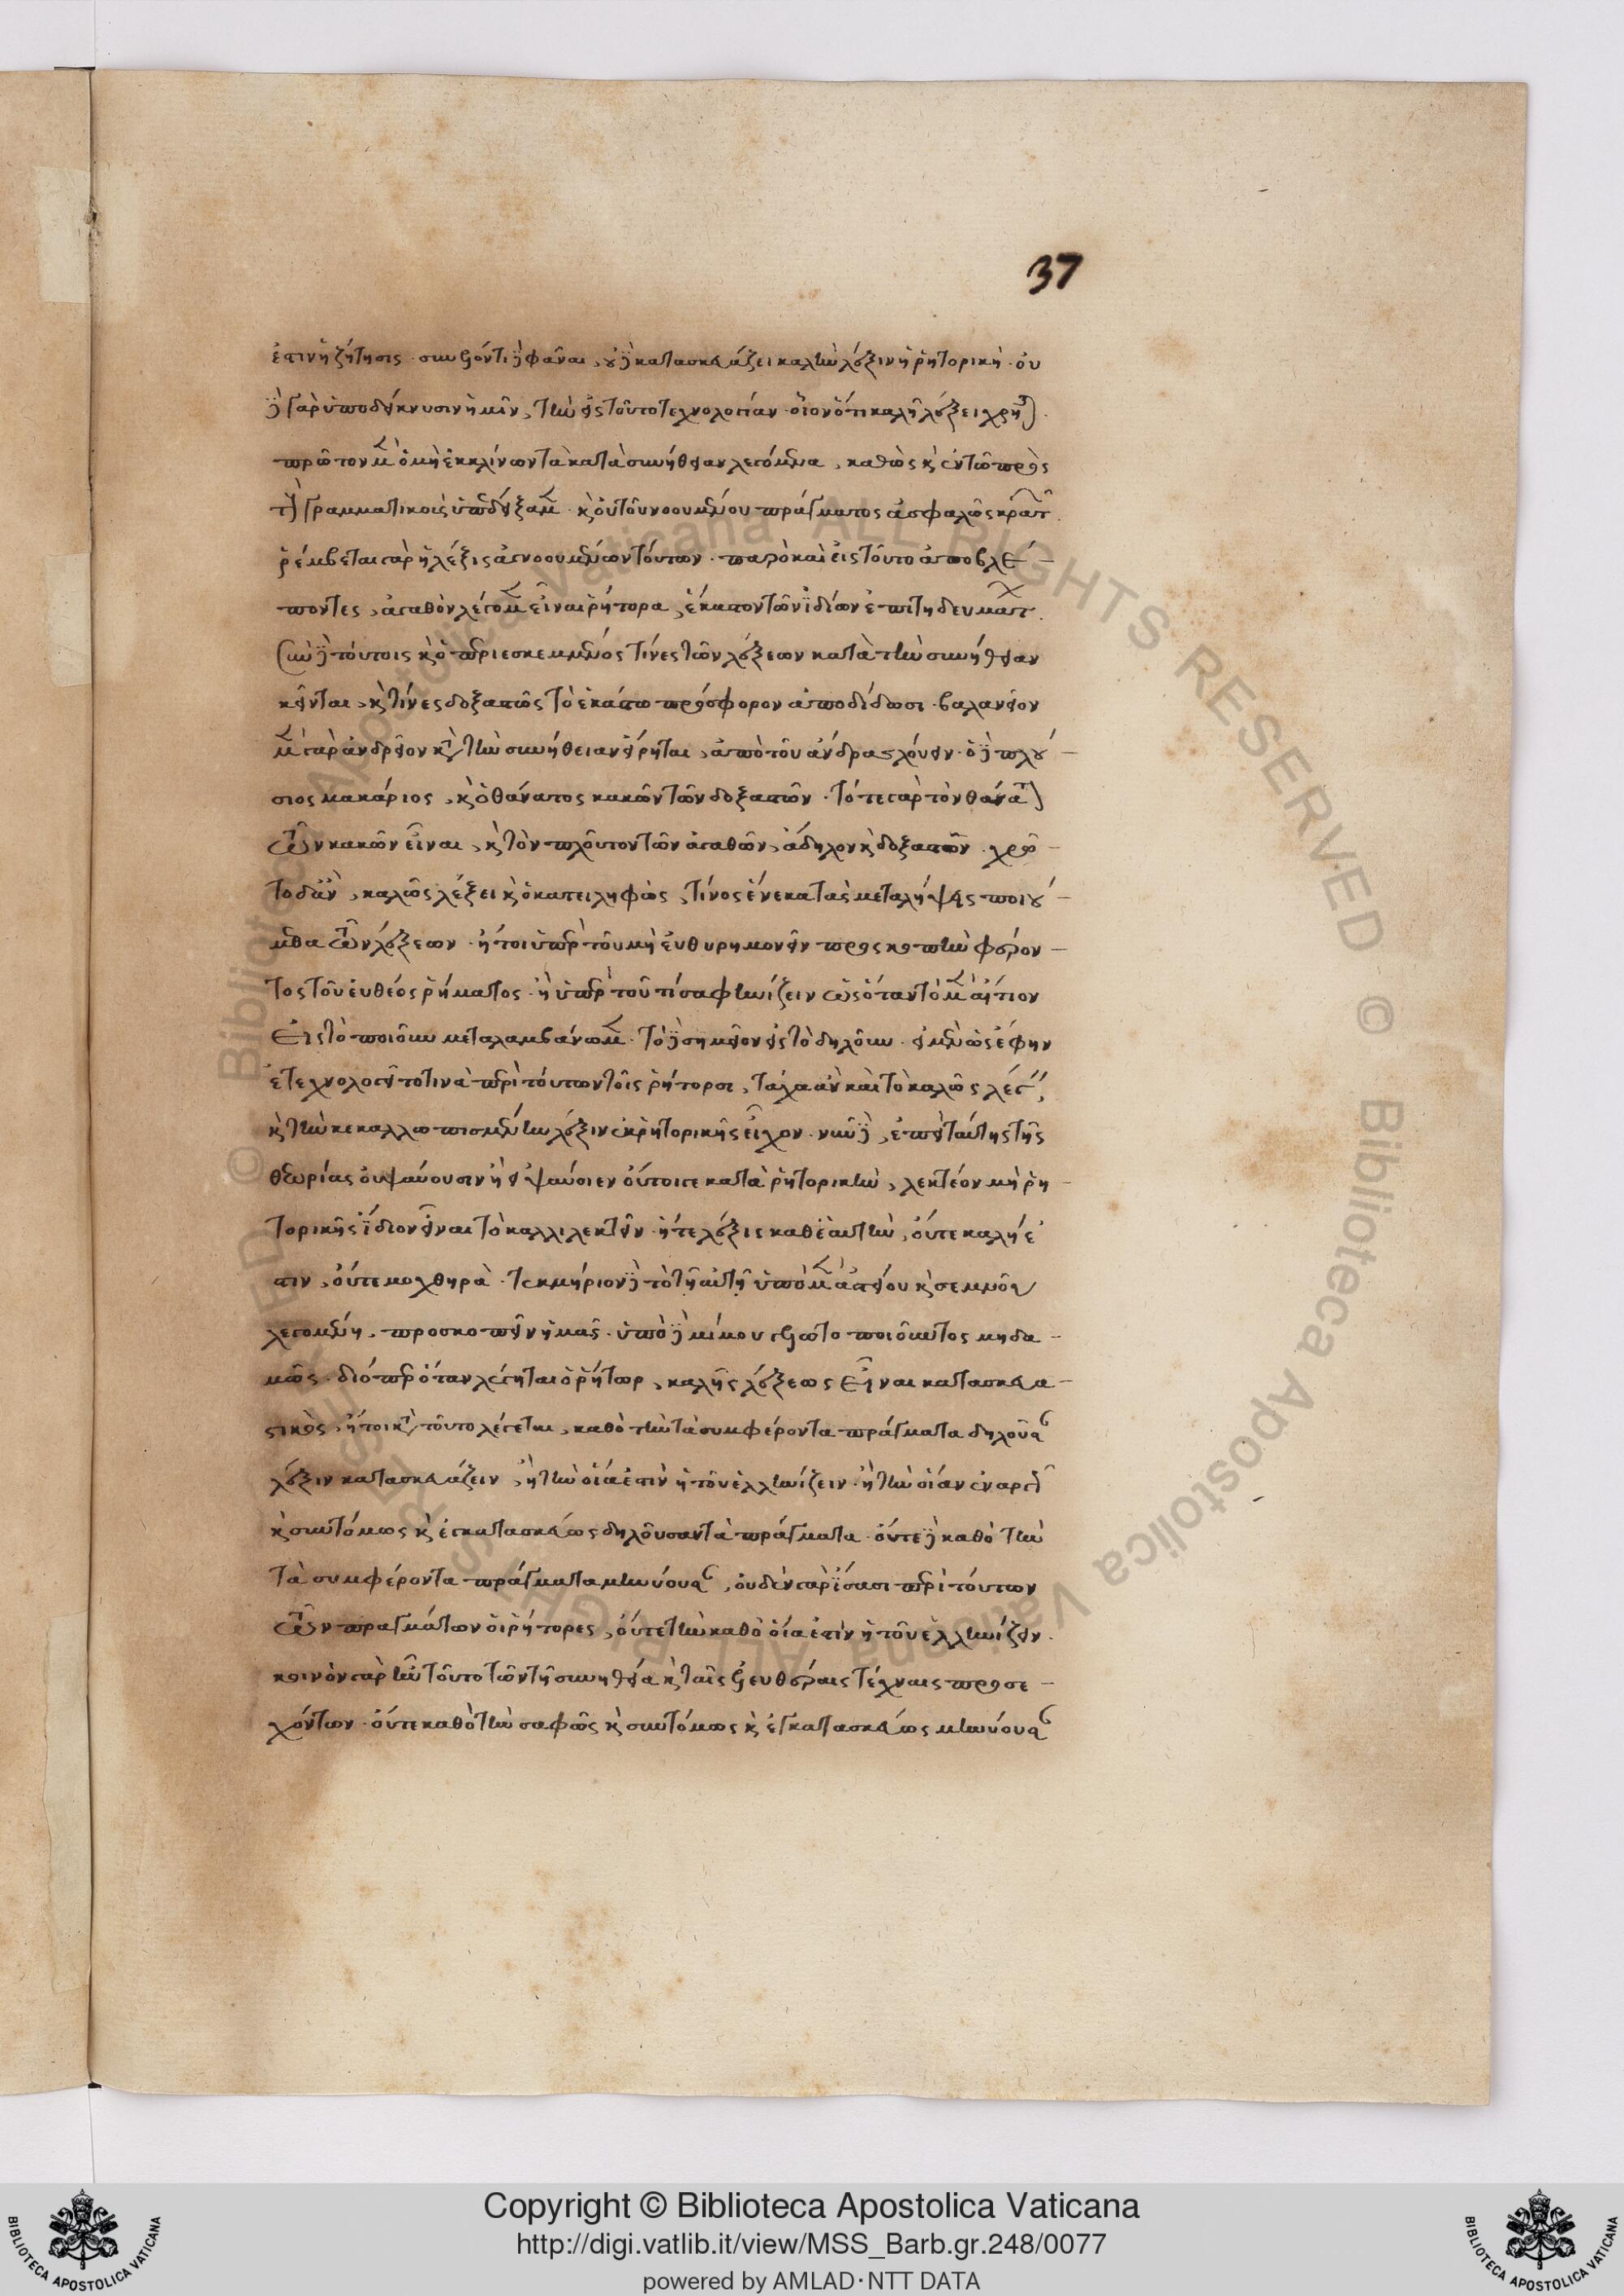 37
ἐστιν ἡ ζήτησις. συνελόντι δὲ φᾶναι, οὐδὲ κατασκευάζει καλὴν λέξιν ἡ ῥητορική. οὐ
δὲ γὰρ ὑποδείκνυσιν ἡμῖν, τὴν εἰς τοῦτο τεχνολογίαν. οἷον ὅτι καλῇ λέξει χρῆται
πρῶτον μὲν ὁ μὴ ἐκκλίνων τὰ κατὰ συνήθειαν λεγόμενα, καθὼς καὶ ἐν τῷ πρὸς
τοὺς γραμματικοὺς ὑπεδείξαμεν. καὶ ὁ τοῦ νοουμένου πράγματος ἀσφαλῶς κρατῶν.
ῥέμβεται γὰρ ἡ λέξις ἀγνοουμένων τούτων. παρὸ καὶ εἰς τοῦτο ἀποβλέ-
ποντες, ἀγαθὸν λέγομεν εἶναι ῥήτορα, ἕκαστον τῶν ἰδίων ἐπιτηδευμάτων.
σὺν δὲ τούτοις καὶ ὁ περιεσκεμμένος τίνες τῶν λέξεων κατὰ τὴν συνήθειαν
κεῖνται, καὶ τίνες δοξαστῶς τὸ ἑκάστῳ πρόσφορον ἀποδίδωσι. βαλανεῖον
μὲν γὰρ ἀνδρεῖον κατὰ τὴν συνήθειαν εἴρηται, ἀπὸ τοῦ ἄνδρας λούειν. ὁ δὲ πλού-
σιος μακάριος, καὶ ὁ θάνατος κακῶν τῶν δοξαστῶν. τό τε γὰρ τὸν θάνατον
τῶν κακῶν εἶναι, καὶ τὸν πλοῦτον τῶν ἀγαθῶν, ἄδηλον καὶ δοξαστῶν. χρῷ-
το δ' ἂν, καλῶς λέξει καὶ ὁ κατειληφὼς, τίνος ἕνεκα τὰς μεταλήψεις ποιού-
μεθα τῶν λέξεων. ἤτοι ὑπὲρ τοῦ μὴ εὐθυρημονεῖν προσκοπὴν φέρον-
τος τοῦ εὐθέος ῥήματος. ἢ ὑπὲρ τοῦ τί σαφηνίζειν ὡς ὅταν τὸ μὲν αἴτιον
εἰς τὸ ποιοῦν μεταλαμβάνωμεν. τὸ δὲ σημεῖον εἰς τὸ δηλοῦν. εἰ μὲν ὡς ἔφην
ἐτεχνολογεῖτό τινα περὶ τούτων τοῖς ῥήτορσι, τάχα ἂν καὶ τὸ καλῶς λέγειν,
καὶ τὴν κεκαλλωπισμένην λέξιν ἐκ ῥητορικῆς εἶχον. νῦν δὲ, ἐπεὶ ταύτης τῆς
θεωρίας οὐ ψαύουσιν ἢ εἰ ψαύσιεν οὗτοι γε κατὰ ῥητορικὴν, λεκτέον μὴ ῥη-
τορικῆς ἴδιον εἶναι τὸ καλλιλεκτεῖν. ἥ τε λέξις καθ' ἑαυτὴν, οὔτε καλή ἐ
στιν, οὔτε μοχθηρὰ. τεκμήριον δὲ τὸ τῇ αὐτῇ ὑπὸ μὲν ἀστείου καὶ σεμνοῦ
λεγομένη, προσκοπεῖν ἡμᾶς. ὑπὸ δὲ μίμου γελωτοποιοῦντος μηδα-
μῶς. διόπερ ὅταν λέγηται ὁ ῥήτωρ, καλῆς λέξεως εἶναι κατασκευα-
στικὸς, ἤτοι κατὰ τοῦτο λέγεται, καθὸ τὴν τὰ συμφέροντα πράγματα δηλοῦσαν
λέξιν κατασκευάζειν, ἢ τὴν οἵα ἐστὶν ἡ τοῦ ἑλληνίζειν. ἢ τὴν οἵαν ἐναργῶς
καὶ συντόμως καὶ ἐγκατασκεύως δηλοῦσαν τὰ πράγματα. οὔτε δὲ καθὸ τὴν
τὰ συμφέροντα πράγματα μηνύουσαν, οὐδὲν γὰρ ἴσασι περὶ τούτων
τῶν πραγμάτων οἱ ῥήτορες, οὔτε τὴν καθὸ οἵα ἐστὶν ἡ τοῦ ἑλληνίζειν.
κοινὸν γὰρ ἦν τοῦτο τῶν τῇ συνηθείᾳ καὶ ταῖς ἐλευθέραις τέχναις προσε-
χόντων. οὔτε καθὸ τὴν σαφῶς καὶ συντόμως καὶ ἐγκατασκεύως μηνύουσαν
Copyright © Biblioteca Apostolica Vaticana
http://digi.vatlib.it/view/MSS_Barb.gr.248/0077
powered by AMLAD·NTT DATA